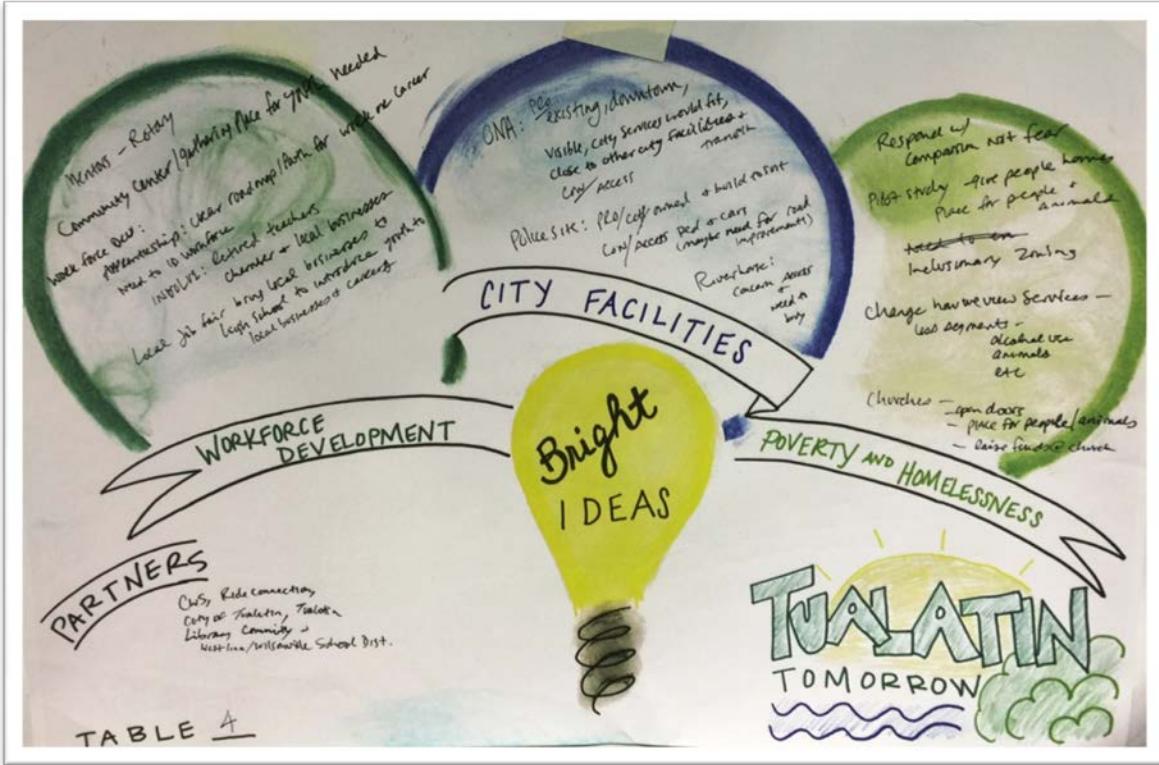 Mentors - Rotary
Community center/gathering place for youth needed
Work force Dev:
Apprenticeship: clear roadmap/path for work or career
need to ID workforce
INVOLVE: retired teachers
chamber + local businesses
Local job fair bring local businesses to
high school to introduce youth to
local businesses + careers
WORKFORCE
DEVELOPMENT
ONA: Pro existing, downtown,
visible, city services would fit,
close to other city facilities +
transit
Con/ Access
Police site: PRO/city owned + build to suit
Con/Access Ped + cars
(maybe need for road
improvements)
Riverhouse:
concern access
+
need to
buy
CITY FACILITIES
Respond w/
Compassion not fear
Pilot study - give people homes
Place for people +
animals
Inclusionary Zoning
Change how we view services -
less segments -
alcohol use
animals
etc
Churches -
- open doors
- place for people/animals
- raise funds @ church
POVERTY AND HOMELESSNESS
Bright
IDEAS
PARTNERS
CWS, Ride connection,
City of Tualatin, Tualatin
Library Community +
West Linn/Wilsonville School Dist.
TUALATIN
TOMORROW
TABLE 4